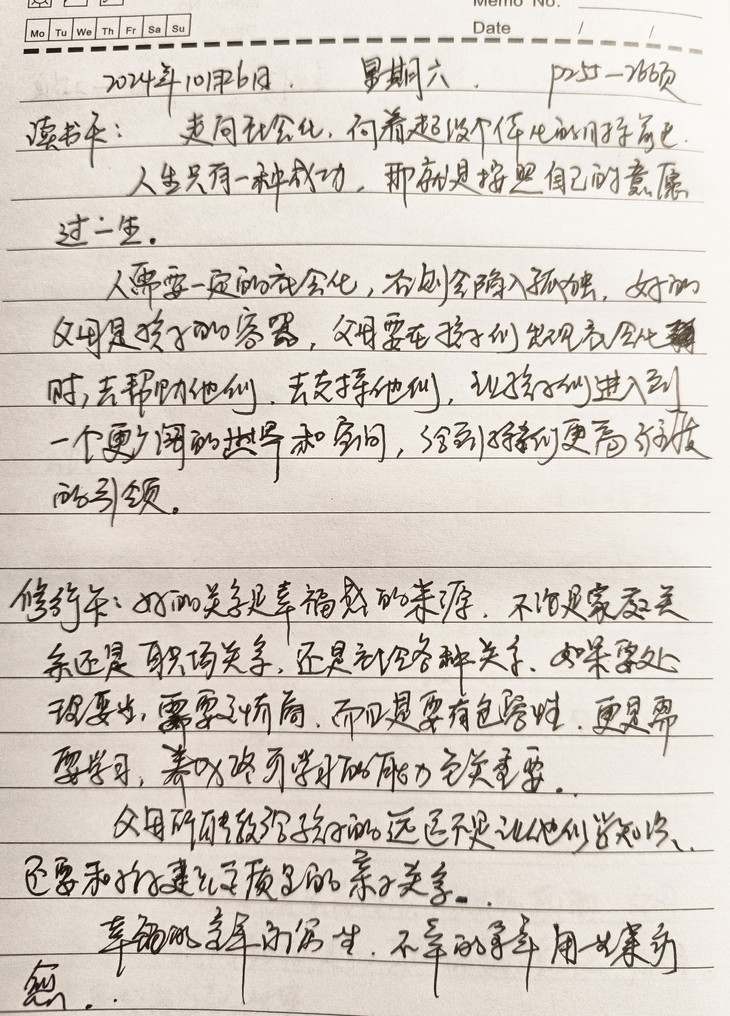 Memo No.
Mo Tu We Th Fr Sa Su
Date / /
2024年10月26日. 星期六. P255-266页
读书卡: 走向社会化, 向着超级个体化的目标前进.
人生只有一种成功, 那就是按照自己的意愿
过一生.
人需要一定的社会化, 否则会陷入孤独. 好的
父母是孩子的容器, 父母要在孩子们出现社会化
时, 去帮助他们. 去支撑他们, 让孩子们进入到
一个更广阔的世界和空间, 给到孩子们更高
的引领.
修行卡: 好的关系是幸福感的来源. 不论是家庭关
系还是职场关系, 还是社会各种关系. 如果要处
理要出, 需要情商. 而且是要有包容性. 更是需
要学习, 养成终身学习的能力至关重要.
父母所能教给孩子的远远不是让他们学知识,
还要和孩子建立高质量的亲子关系.
幸福的童年治愈一生. 不幸的童年用一生来治
愈.